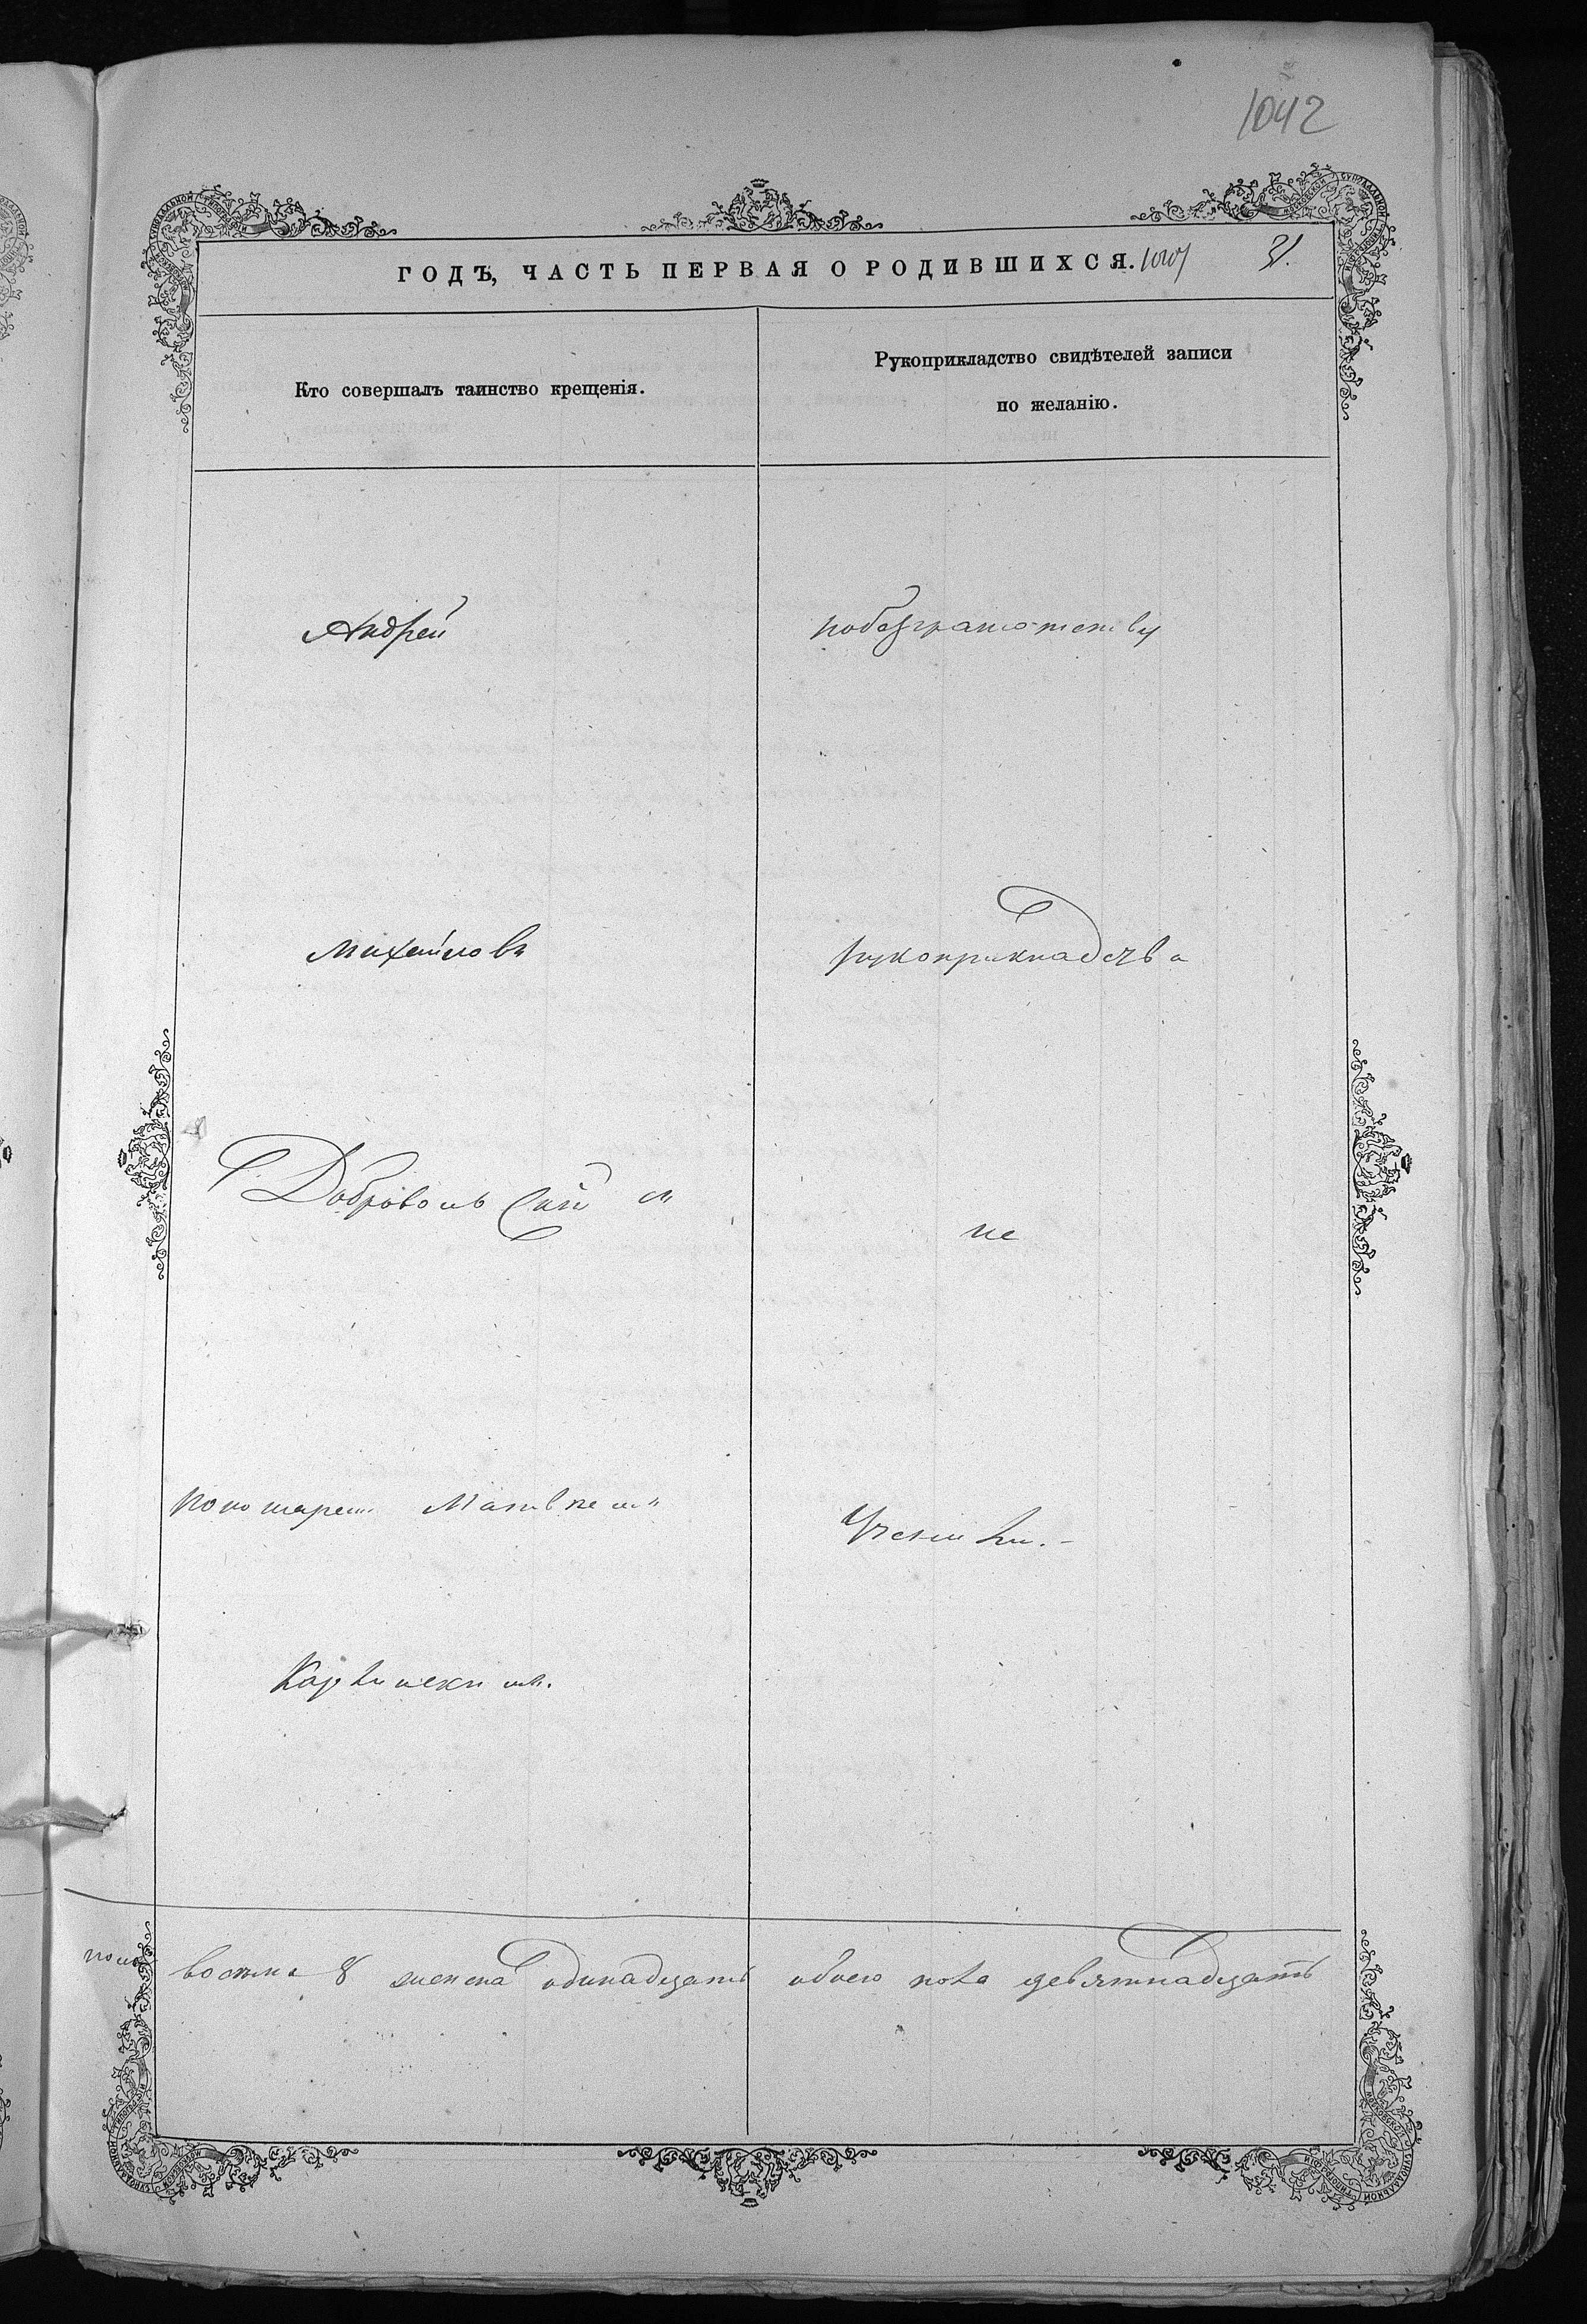 1042
ГОДЪ, ЧАСТЬ ПЕРВАЯ О РОДИВШИХСЯ.
31.
Кто совершалъ таинство крещенія.
Рукоприкладство свидѣтелей записи
по желанію.
Андрей
Михайловъ
Добровольскій съ
пономаремъ Матвѣемъ
по безграмотству
рукоприкладства
не
учинили.
пола восемь 8 женска одинадцать обоего пола девятнадцать